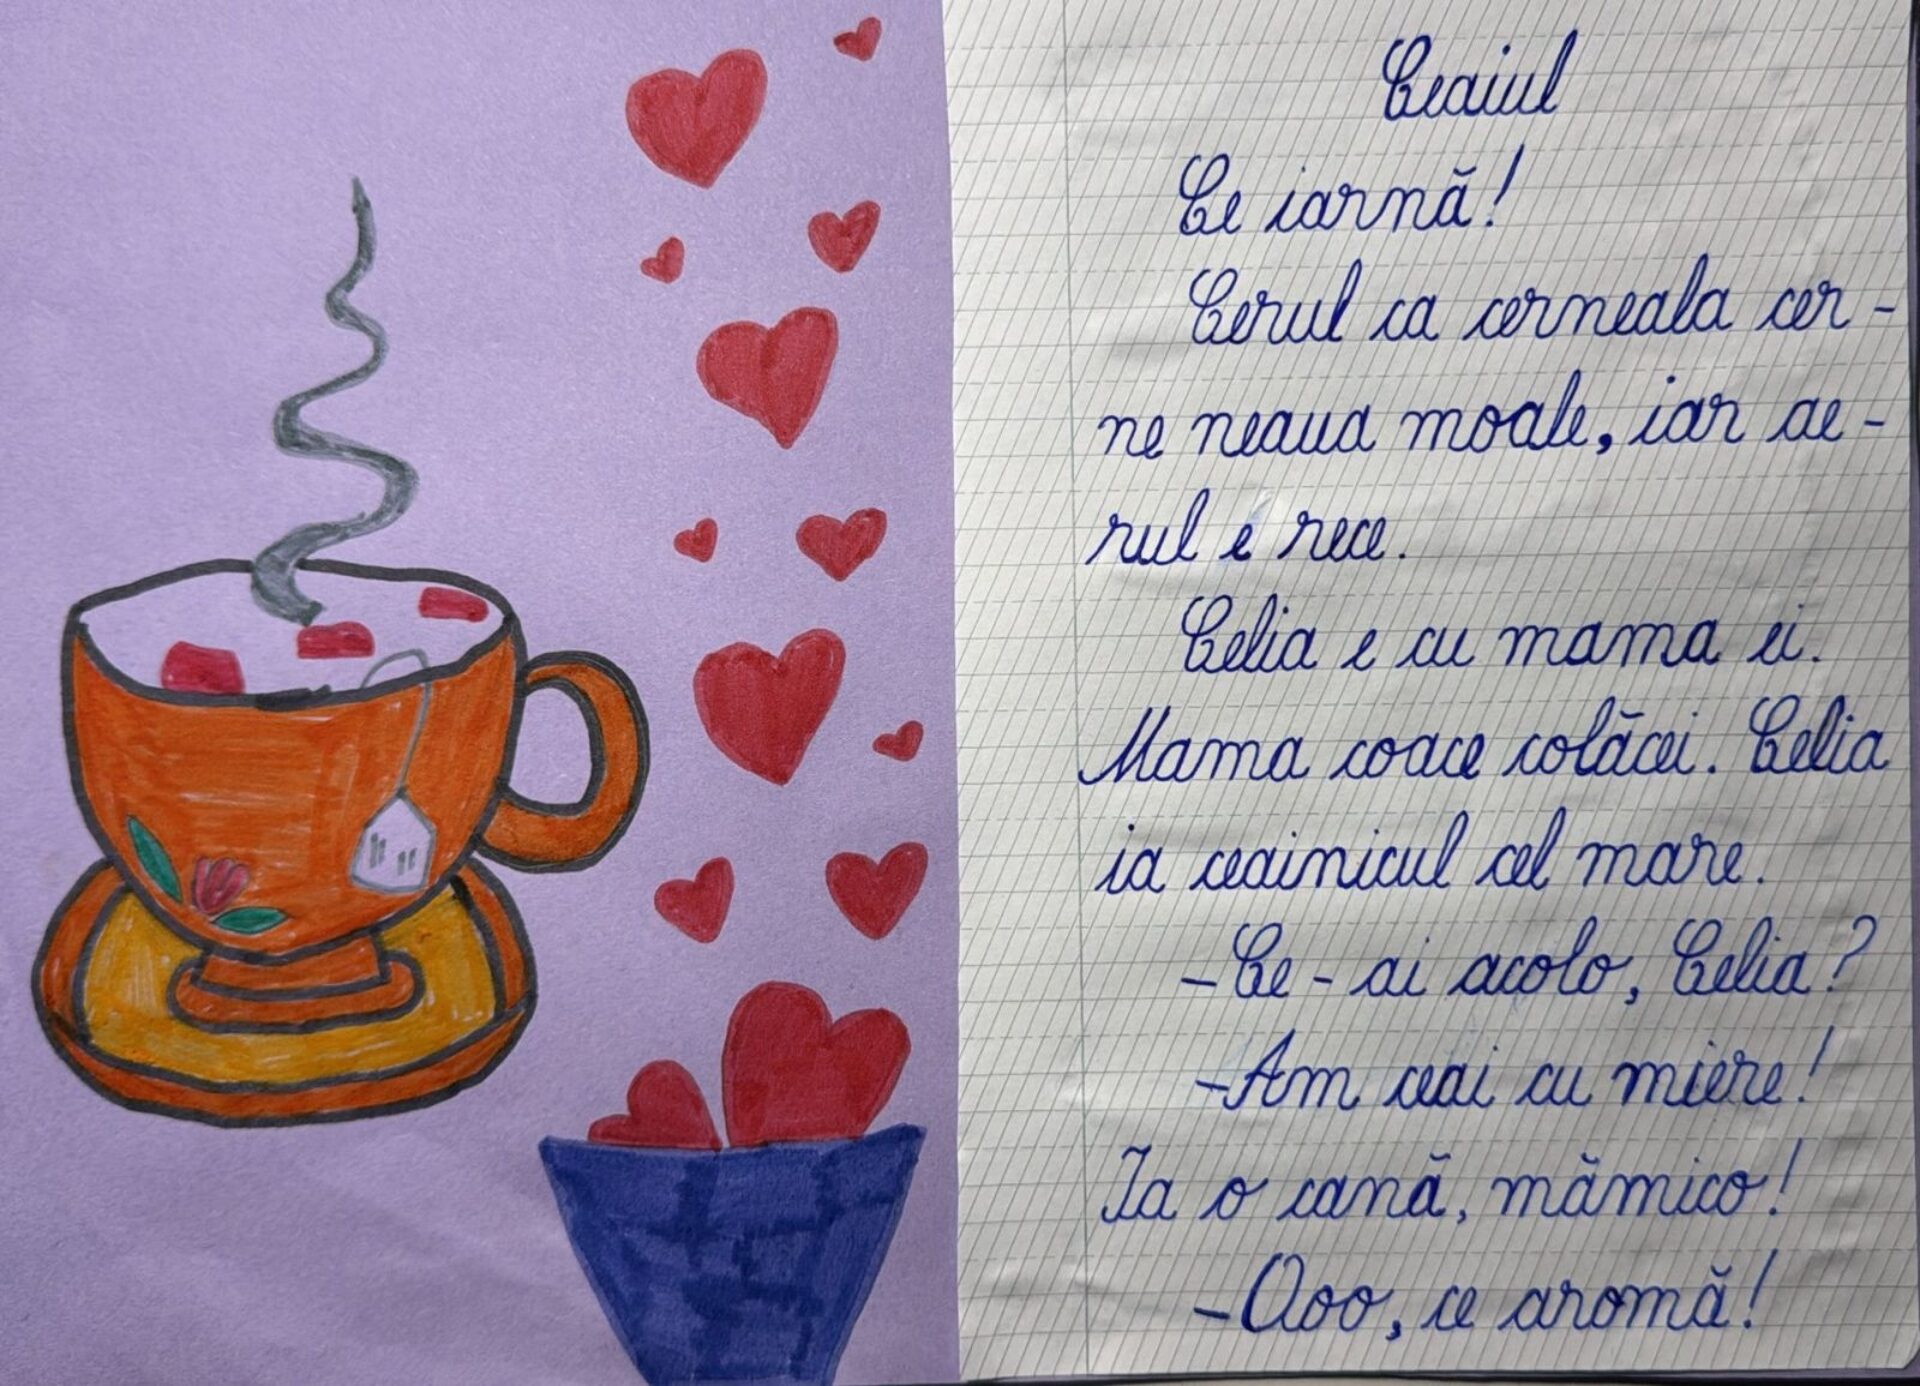 Ceaiul
Ce iarnă!
Cerul ca cerneala cer-
ne neaua moale, iar ae-
rul e rece.
Celia e cu mama ei.
Mama coace colăcei. Celia
ia ceainicul cel mare.
-Ce-ai acolo, Celia?
-Am ceai cu miere!
Ia o cană, mămico!
-Ooo, ce aromă!